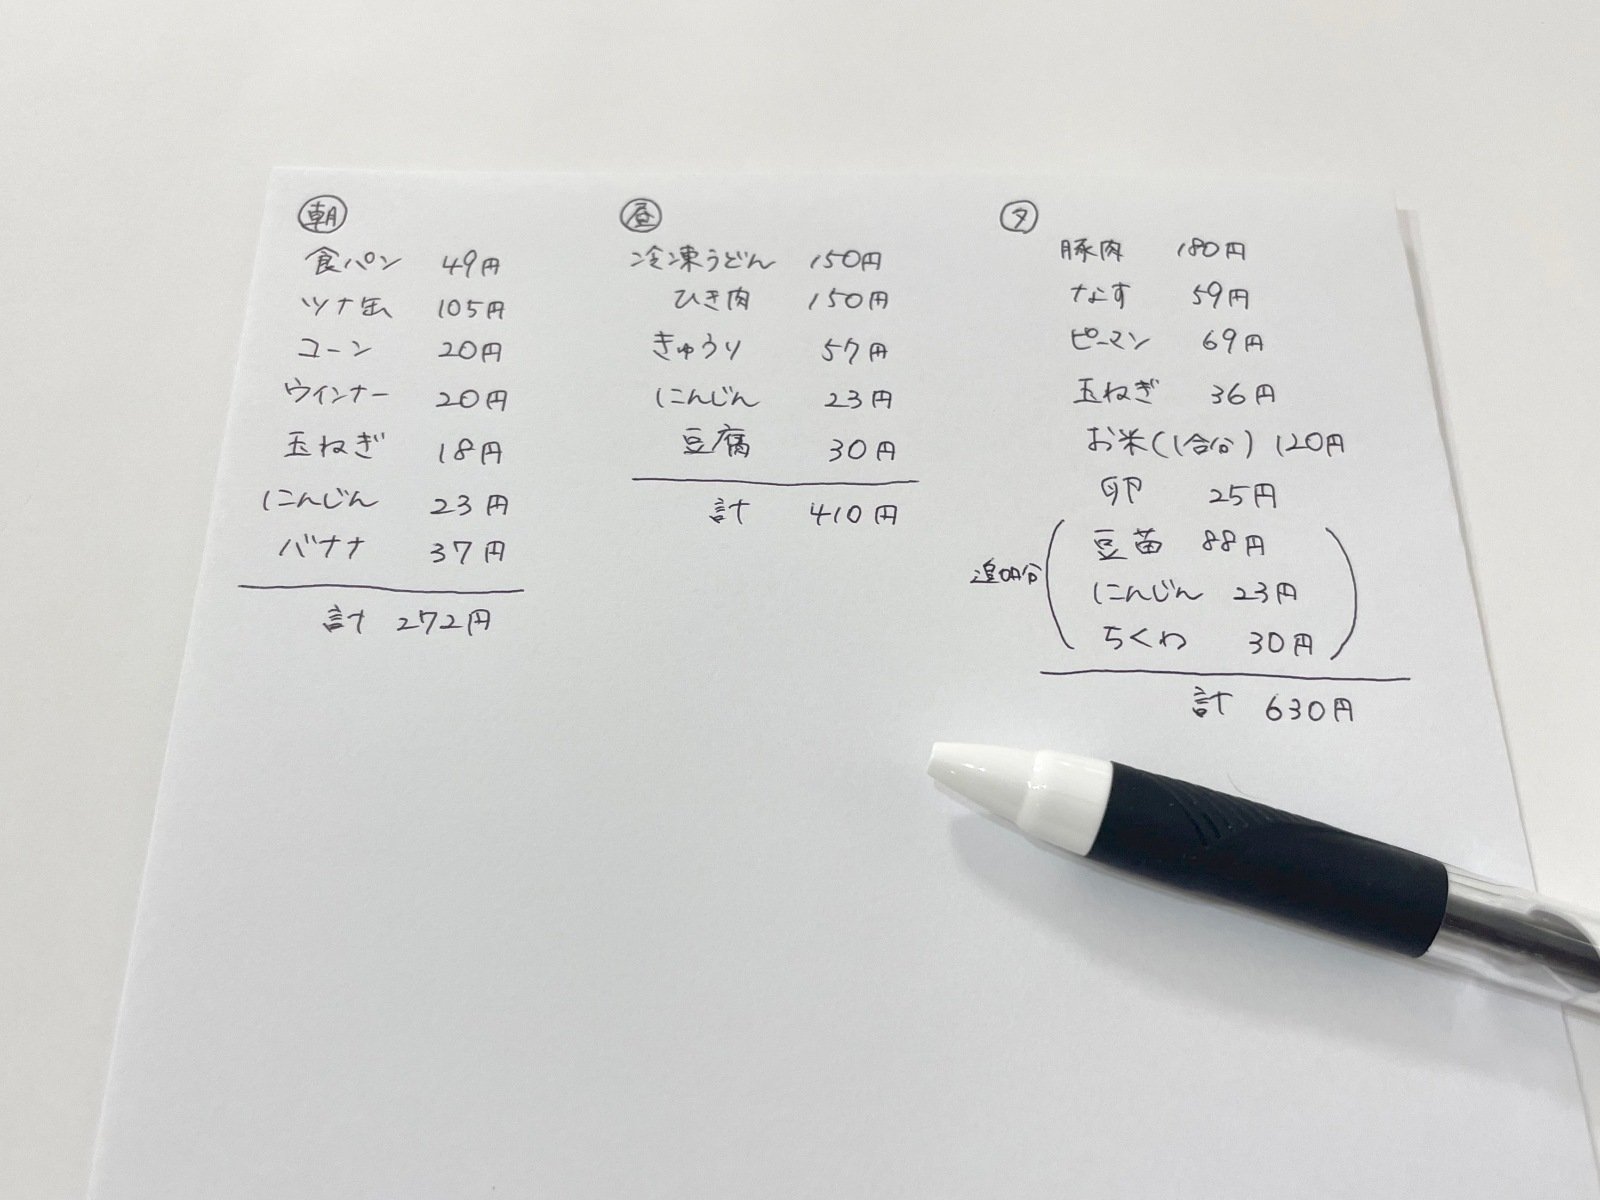 朝
食パン 49円
ツナ缶 105円
コーン 20円
ウインナー 20円
玉ねぎ 18円
にんじん 23円
バナナ 37円
計 272円
昼
冷凍うどん 150円
ひき肉 150円
きゅうり 57円
にんじん 23円
豆腐 30円
計 410円
夕
豚肉 180円
なす 59円
ピーマン 69円
玉ねぎ 36円
お米(1合分) 120円
卵 25円
追加分
豆苗 88円
にんじん 23円
ちくわ 30円
計 630円